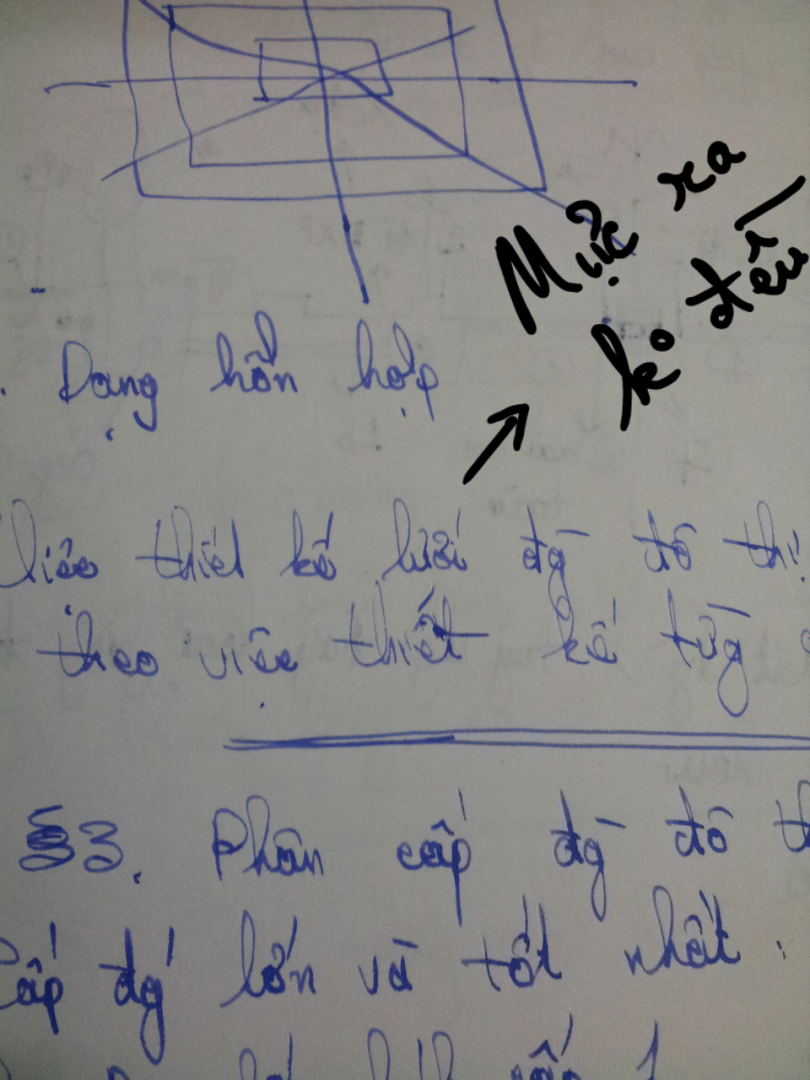 Mực ra
ko đều
. Dạng hỗn hợp
thiết kế lưới đg đô thị
theo việc thiết kế từg
§3. Phân cấp đg đô
Cấp đg lớn và tốt nhất :